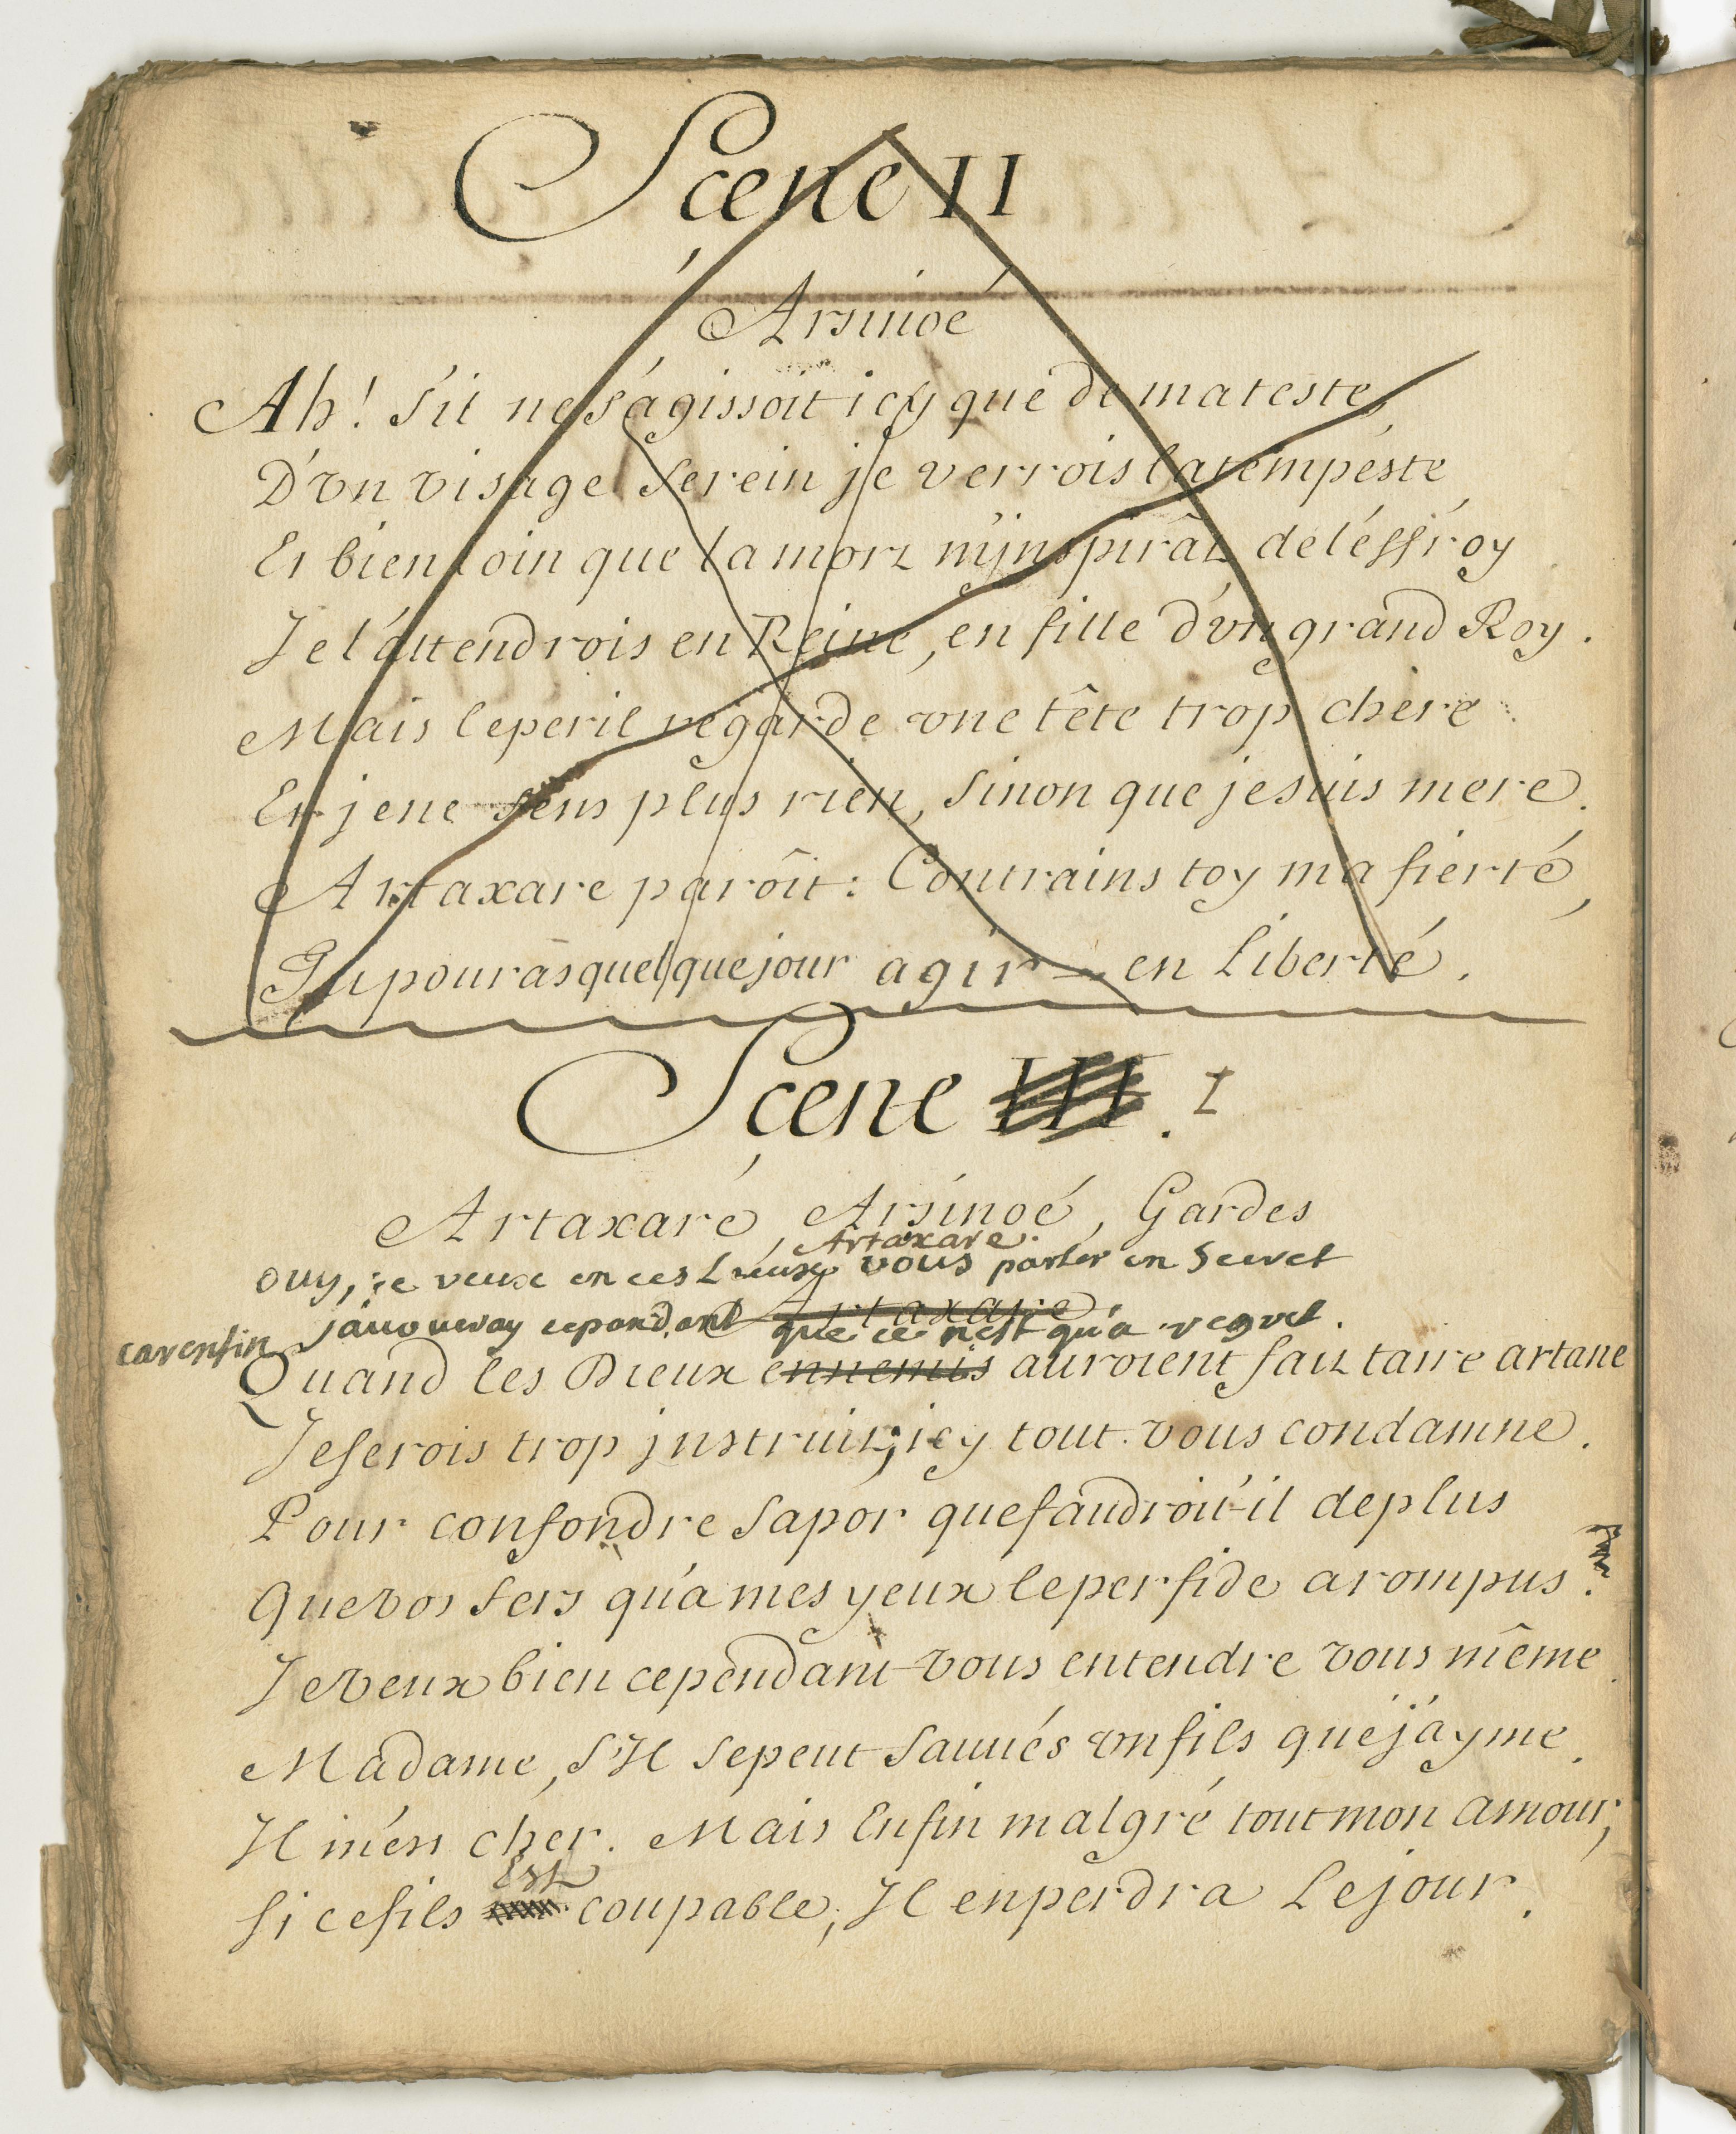 Scene II
Arsinoé
Ah! s'il ne s'agissoit icy que de ma teste,
D'vn visage serein je verrois la tempéste,
Et bien loin que la mort m'jnspirât de l'éffroy
Je l'attendrois en Reine, en fille d'vn grand Roy.
Mais le peril regarde vne tête trop chere
Et je ne sens plus rien, sinon que je suis mere.
Artaxare parôit: Contrains toy ma fierté,
Tu pouras quelque jour agir en liberté.
Scene III. I
Artaxare, Arsinoé, Gardes
Artaxare.
ouy, je veux en ces Lieux vous parler en Secret
Artaxare
j'auoueray cependant que ce n'est qu'a regret.
car enfin
Quand les Dieux ennemis auroient fait taire artane
Je serois trop jnstruit; icy tout vous condamne.
Pour confondre Sapor que faudroit-il de plus
Que vos fers qu'a mes yeux le perfide a rompus.
Je veux bien cependant vous entendre vous même
Madame, s'Il se peut sauués vn fils que j'ayme.
Il m'est cher. Mais Enfin malgré tout mon amour,
Est
Si ce fils coupable, Il en perdra Le jour.